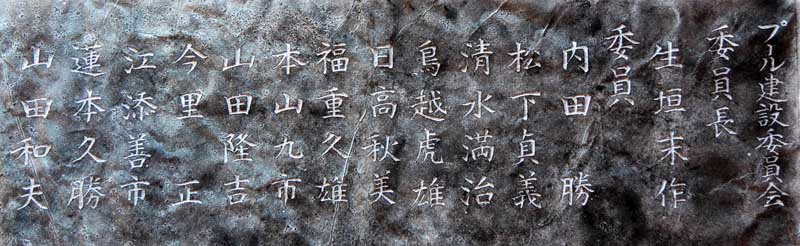 プル建設委員会
委員長
生垣末作
委員
内田勝
松下貞義
清水満治
鳥越虎雄
日高秋美
福重久雄
本山九市
山田隆吉
今里正
江添善市
蓮本久勝
山田和夫